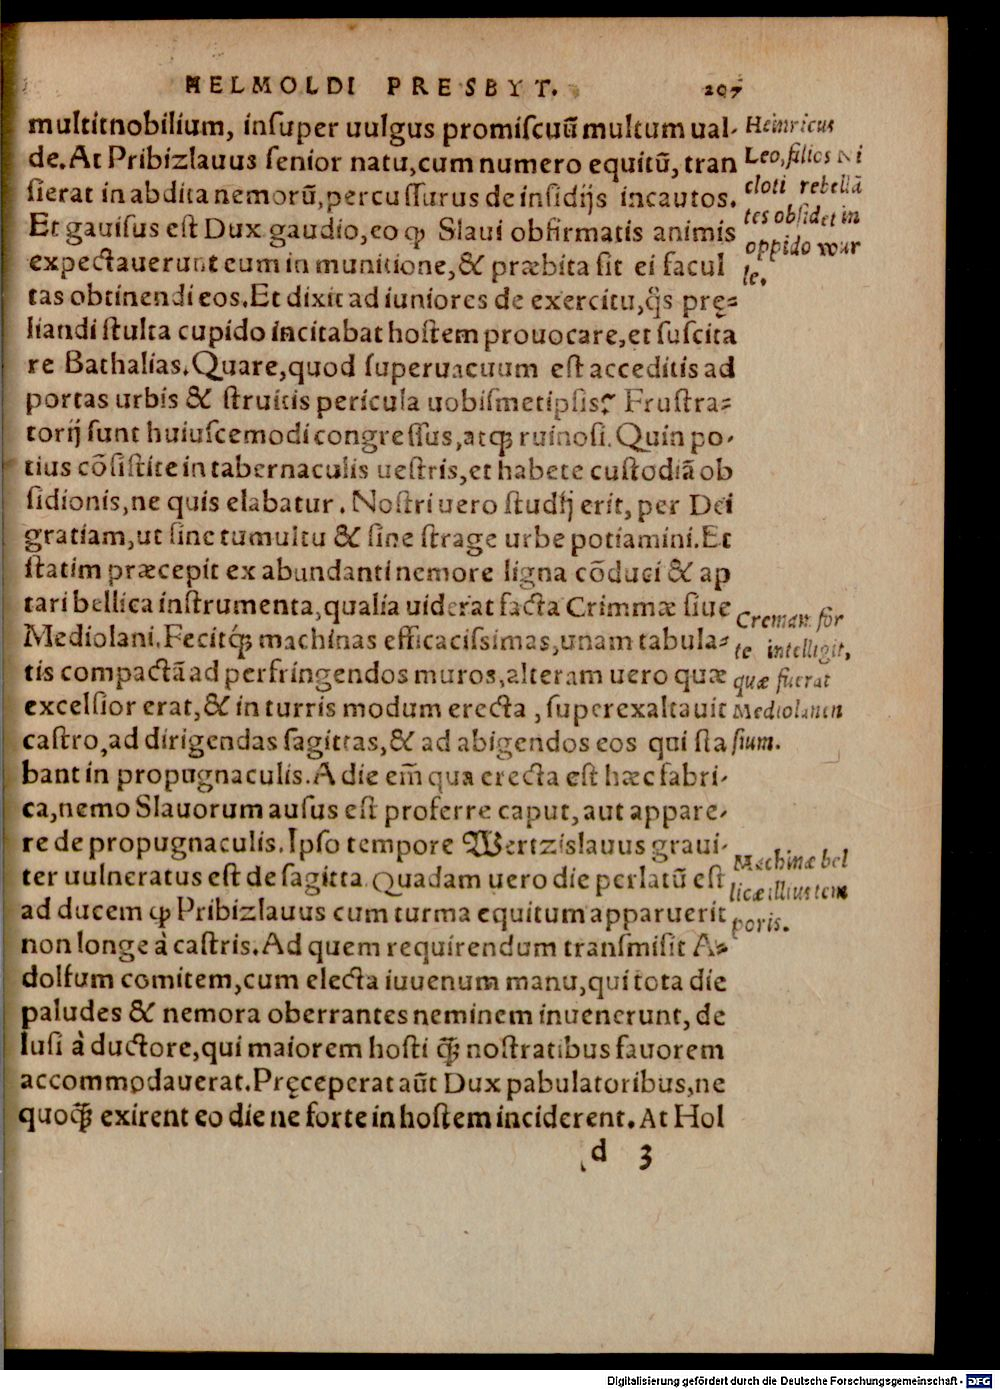 HELMOLDI PRESBYT. 207
multitnobilium, insuper uulgus promiscuũ multum ual-
de. At Pribizlauus senior natu, cum numero equitũ, tran
sierat in abdita nemorũ, percussurus de insidijs incautos.
Et gauisus est Dux gaudio, eo ꝙ Slaui obfirmatis animis
expectauerunt eum in munitione, & præbita sit ei facul
tas obtinendi eos. Et dixit ad iuniores de exercitu, q̃s prę-
liandi stulta cupido incitabat hostem prouocare, et suscita
re Bathalias. Quare, quod superuacuum est acceditis ad
portas urbis & struitis pericula uobismetipsis? Frustra-
torij sunt huiuscemodi congressus, atq; ruinosi. Quin po-
tius cõsistite in tabernaculis uestris, et habete custodiã ob
sidionis, ne quis elabatur. Nostri uero studij erit, per Dei
gratiam, ut sine tumultu & sine strage urbe potiamini. Et
statim præcepit ex abundanti nemore ligna cõduci & ap
tari bellica instrumenta, qualia uiderat facta Crimmæ siue
Mediolani. Fecitq́; machinas efficacissimas, unam tabula-
tis compactã ad perfringendos muros, alteram uero quæ
excelsior erat, & in turris modum erecta, superexaltauit
castro, ad dirigendas sagittas, & ad abigendos eos qui sta
bant in propugnaculis. A die em̃ qua erecta est hæc fabri-
ca, nemo Slauorum ausus est proferre caput, aut appare-
re de propugnaculis. Ipso tempore Wertzislauus graui-
ter uulneratus est de sagitta. Quadam uero die perlatũ est
ad ducem ꝙ Pribizlauus cum turma equitum apparuerit
non longe à castris. Ad quem requirendum transmisit A-
dolfum comitem, cum electa iuuenum manu, qui tota die
paludes & nemora oberrantes neminem inuenerunt, de
lusi à ductore, qui maiorem hosti q̃; nostratibus fauorem
accommodauerat. Pręceperat aũt Dux pabulatoribus, ne
quoq̃; exirent eo die ne forte in hostem inciderent. At Hol
d 3
Heinricus
Leo, filios Ni
cloti rebellã
tes obsidet in
oppido wur
le.
Creman for
te intelligit,
quæ fuerat
Mediolanen
sium.
Machinæ bel
licæ illius tem
poris.
Digitalisierung gefördert durch die Deutsche Forschungsgemeinschaft - DFG